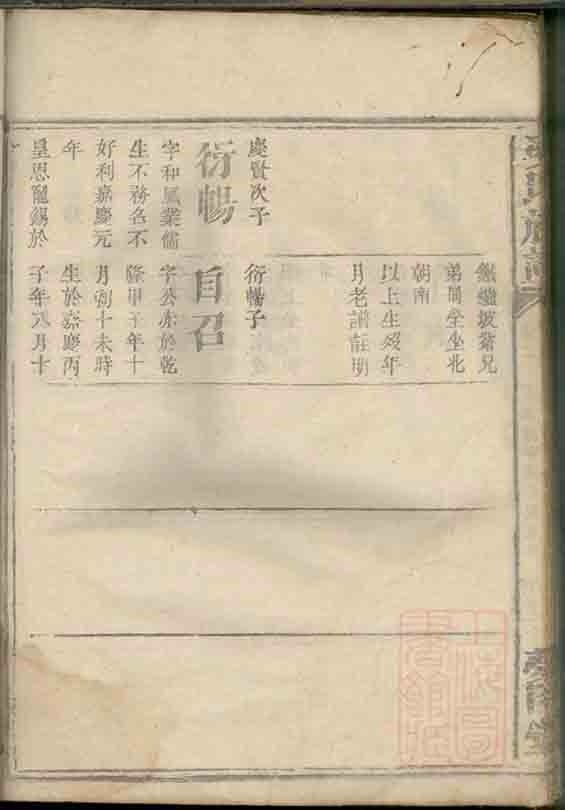 慶賢次子
衍暢
字和風業儒
生不務名不
好利嘉慶元
年
皇恩寵錫於
坡葬兄
弟同塋坐北
朝南
以上生歿年
月老譜註明
衍暢子
自召
字公亦於乾
隆甲子年十
月初十未時
生於嘉慶丙
子年八月十